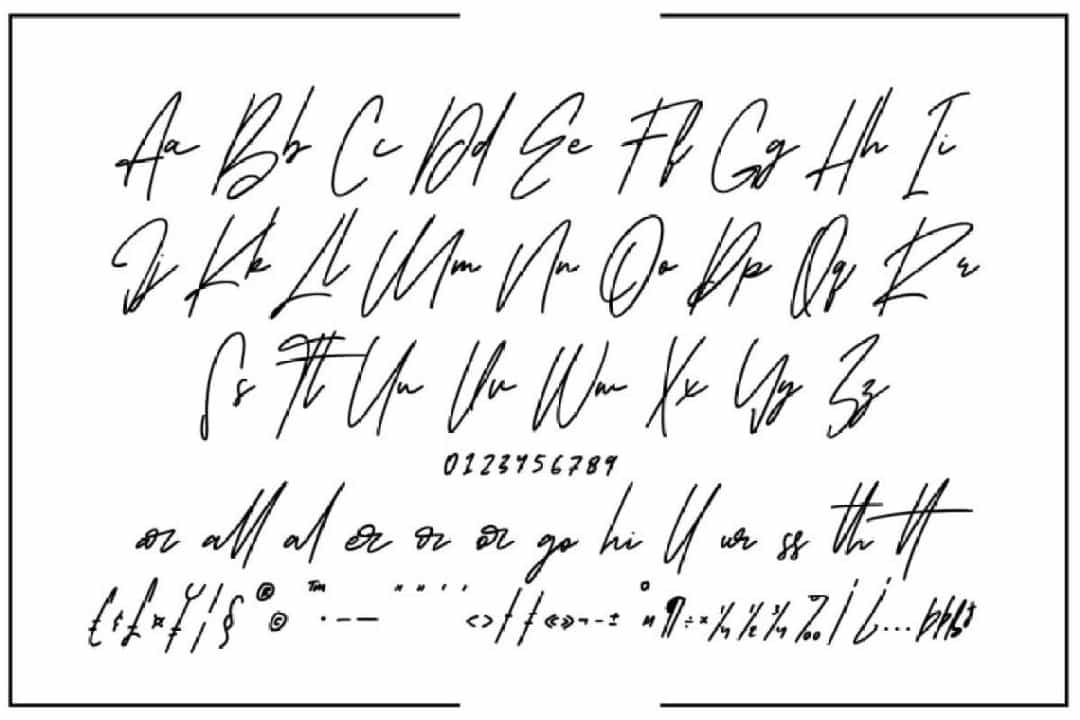 Aa Bb Cc Dd Ee Ff Gg Hh Ii
Jj Kk Ll Mm Nn Oo Pp Qq Rr
Ss Tt Uu Vv Ww Xx Yy Zz
0123456789
or all al er or or go hi ll ur ss th tt
£ ¤ ¥ ¦ § ® © ™ · – — < > † ‡ « » ¬ - ± º ¶ ÷ × ¼ ½ ¾ ‰ ¿ …